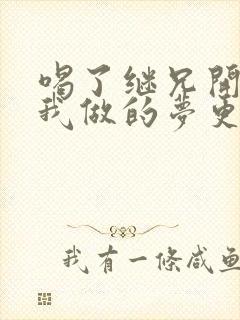 喝了继兄開
我做的夢更
我有一條咸鱼